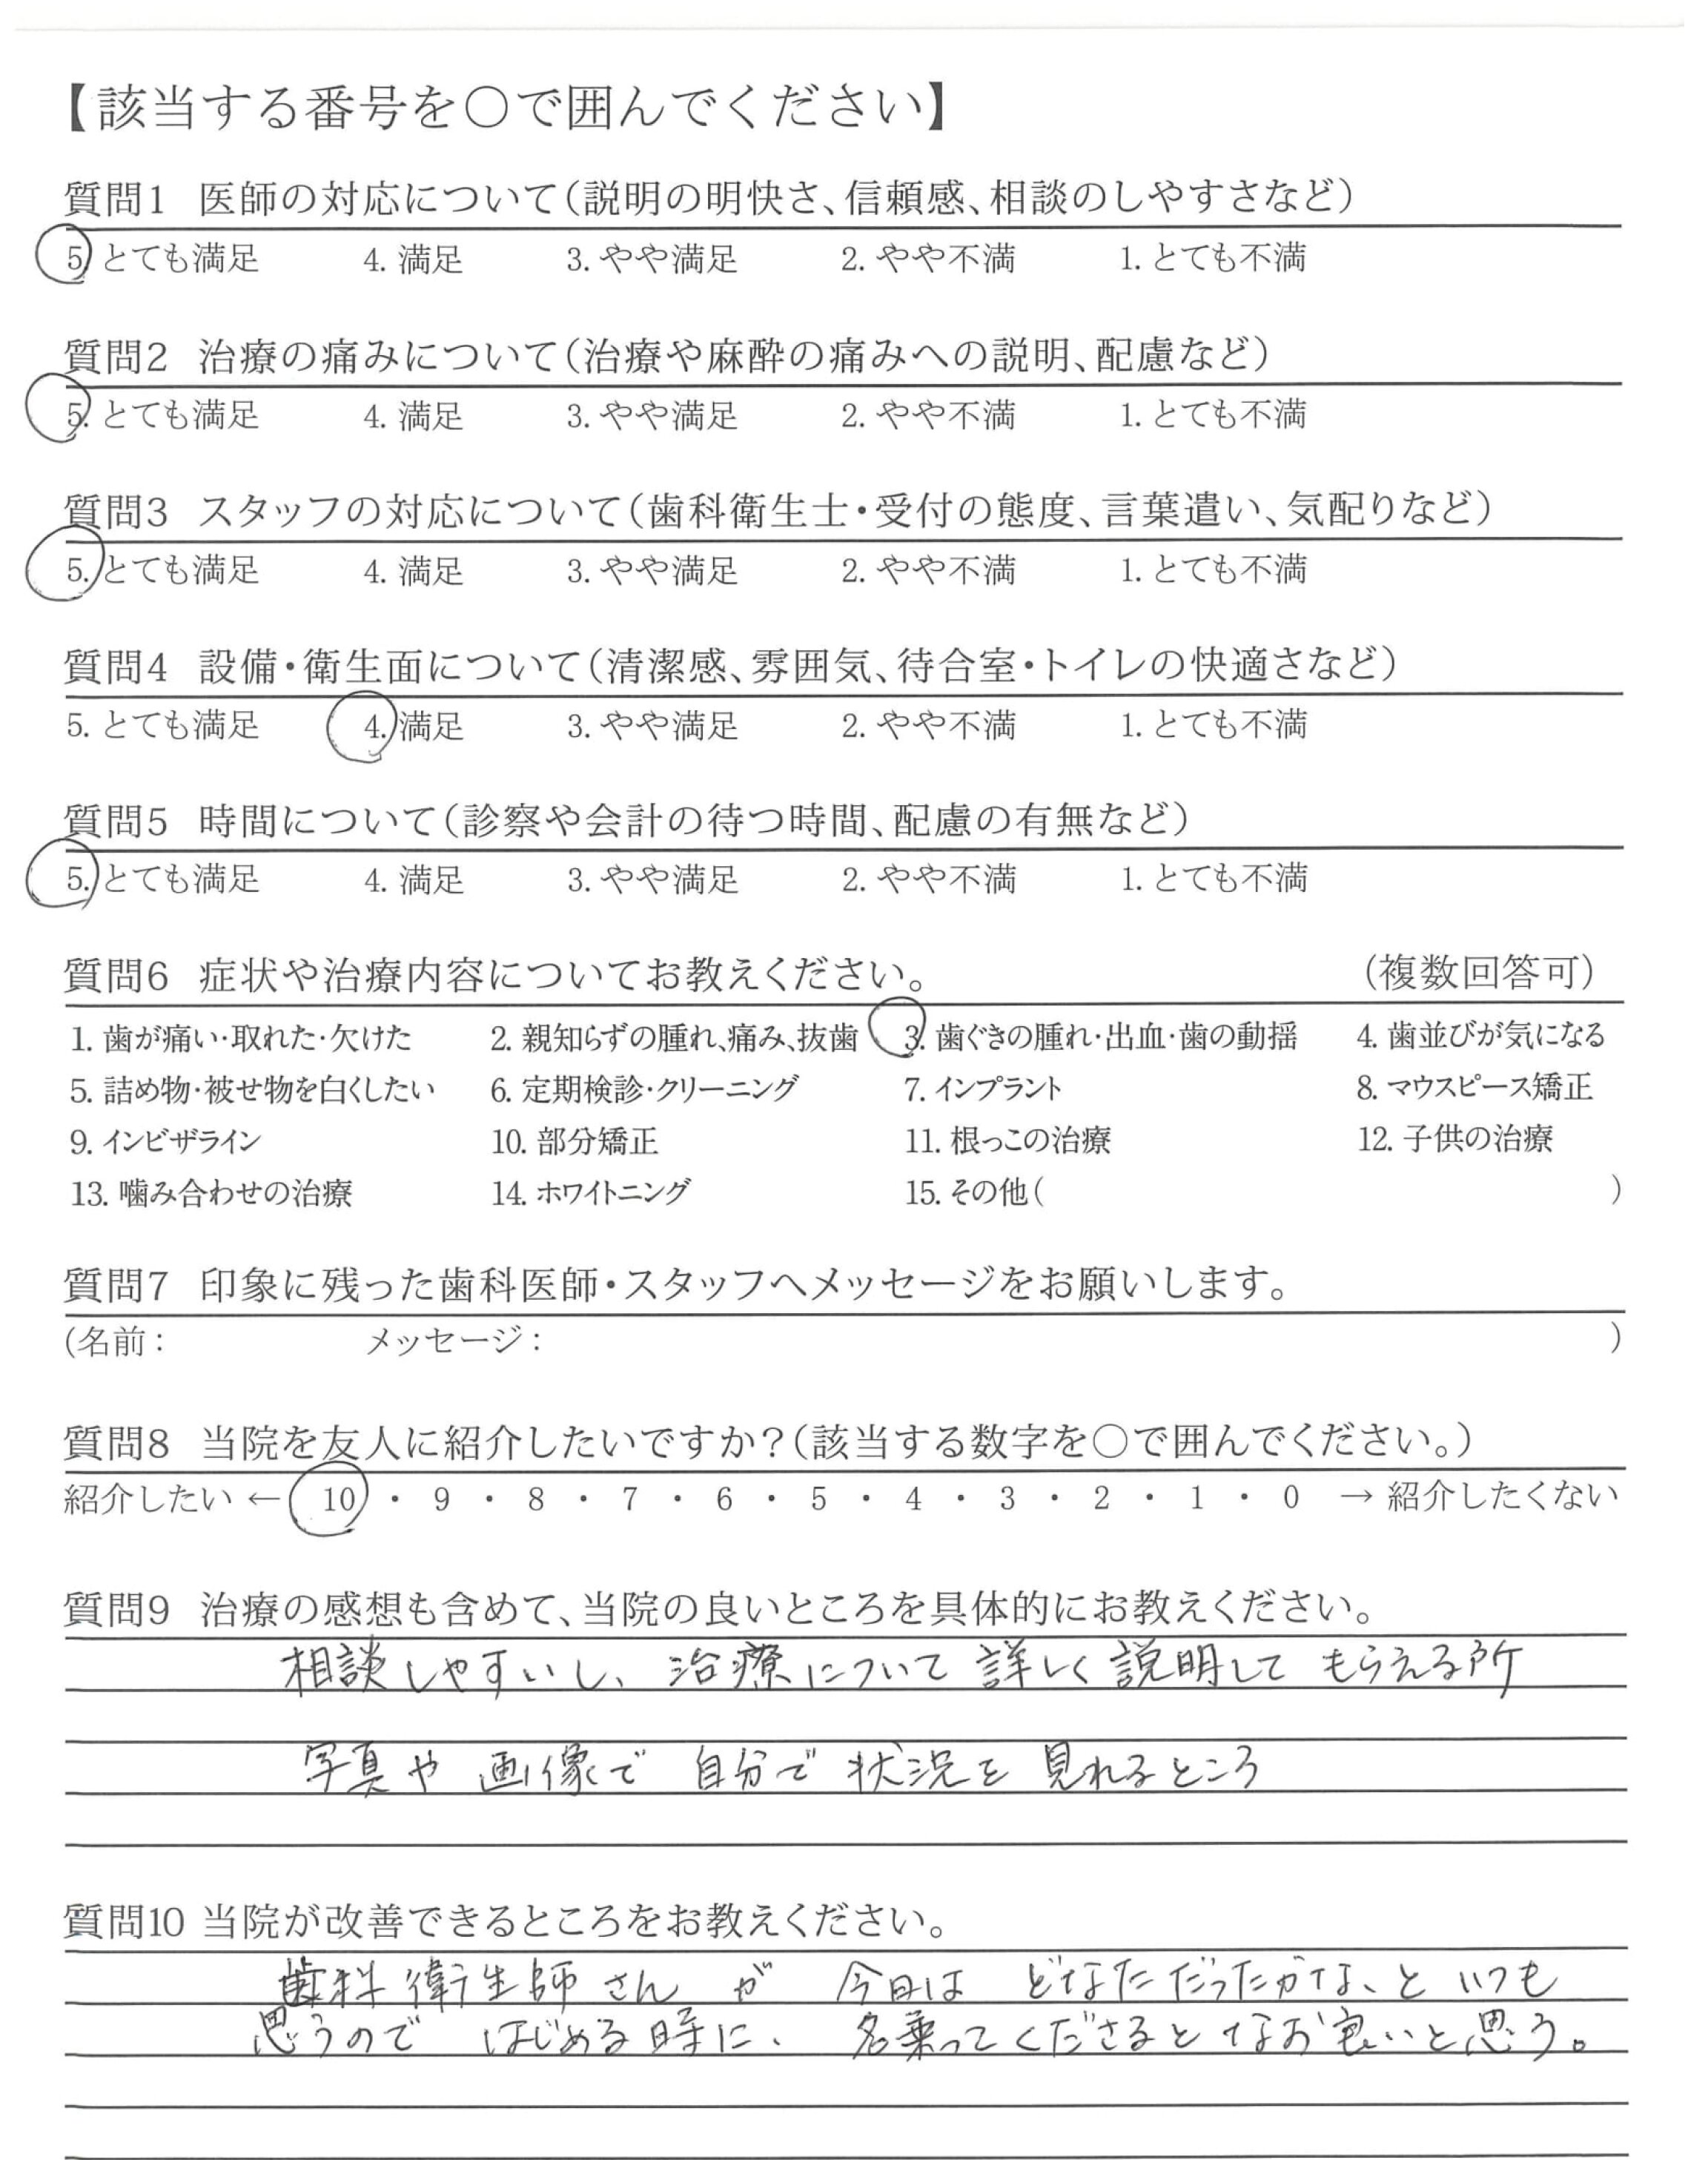 【該当する番号を○で囲んでください】
質問1 医師の対応について(説明の明快さ、信頼感、相談のしやすさなど)
5. とても満足 4. 満足 3. やや満足 2. やや不満 1. とても不満
質問2 治療の痛みについて(治療や麻酔の痛みへの説明、配慮など)
5. とても満足 4. 満足 3. やや満足 2. やや不満 1. とても不満
質問3 スタッフの対応について(歯科衛生士・受付の態度、言葉遣い、気配りなど)
5. とても満足 4. 満足 3. やや満足 2. やや不満 1. とても不満
質問4 設備・衛生面について(清潔感、雰囲気、待合室・トイレの快適さなど)
5. とても満足 4. 満足 3. やや満足 2. やや不満 1. とても不満
質問5 時間について(診察や会計の待つ時間、配慮の有無など)
5. とても満足 4. 満足 3. やや満足 2. やや不満 1. とても不満
質問6 症状や治療内容についてお教えください。 (複数回答可)
1. 歯が痛い・取れた・欠けた 2. 親知らずの腫れ、痛み、抜歯 3. 歯ぐきの腫れ・出血・歯の動揺 4. 歯並びが気になる
5. 詰め物・被せ物を白くしたい 6. 定期検診・クリーニング 7. インプラント 8. マウスピース矯正
9. インビザライン 10. 部分矯正 11. 根っこの治療 12. 子供の治療
13. 噛み合わせの治療 14. ホワイトニング 15. その他( )
質問7 印象に残った歯科医師・スタッフへメッセージをお願いします。
(名前: メッセージ: )
質問8 当院を友人に紹介したいですか?(該当する数字を○で囲んでください。)
紹介したい ← 10 ・ 9 ・ 8 ・ 7 ・ 6 ・ 5 ・ 4 ・ 3 ・ 2 ・ 1 ・ 0 → 紹介したくない
質問9 治療の感想も含めて、当院の良いところを具体的にお教えください。
相談しやすいし、治療について詳しく説明してもらえる所
写真や画像で自分で状況を見れるところ
質問10 当院が改善できるところをお教えください。
歯科衛生師さんが今日はどなただったかな、といつも
思うのではじめる時に、名乗ってくださるとなお良いと思う。